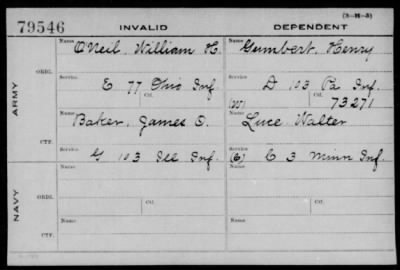 (3-H-5)
79546 INVALID DEPENDENT
Name O'Neil, William H. Name Gumbert, Henry
ORIG. Service: Service:
E 77 Ohio Inf. D 103 Pa Inf.
ARMY Ctf. (W) Ctf. 73271
Name Baker, James O. Name Luce Walter
CTF. Service: Service:
G 103 Ill Inf. (C) C 3 Minn Inf.
Name: Name:
ORIG. Ctf. Ctf.
NAVY
Name: Name:
CTF.